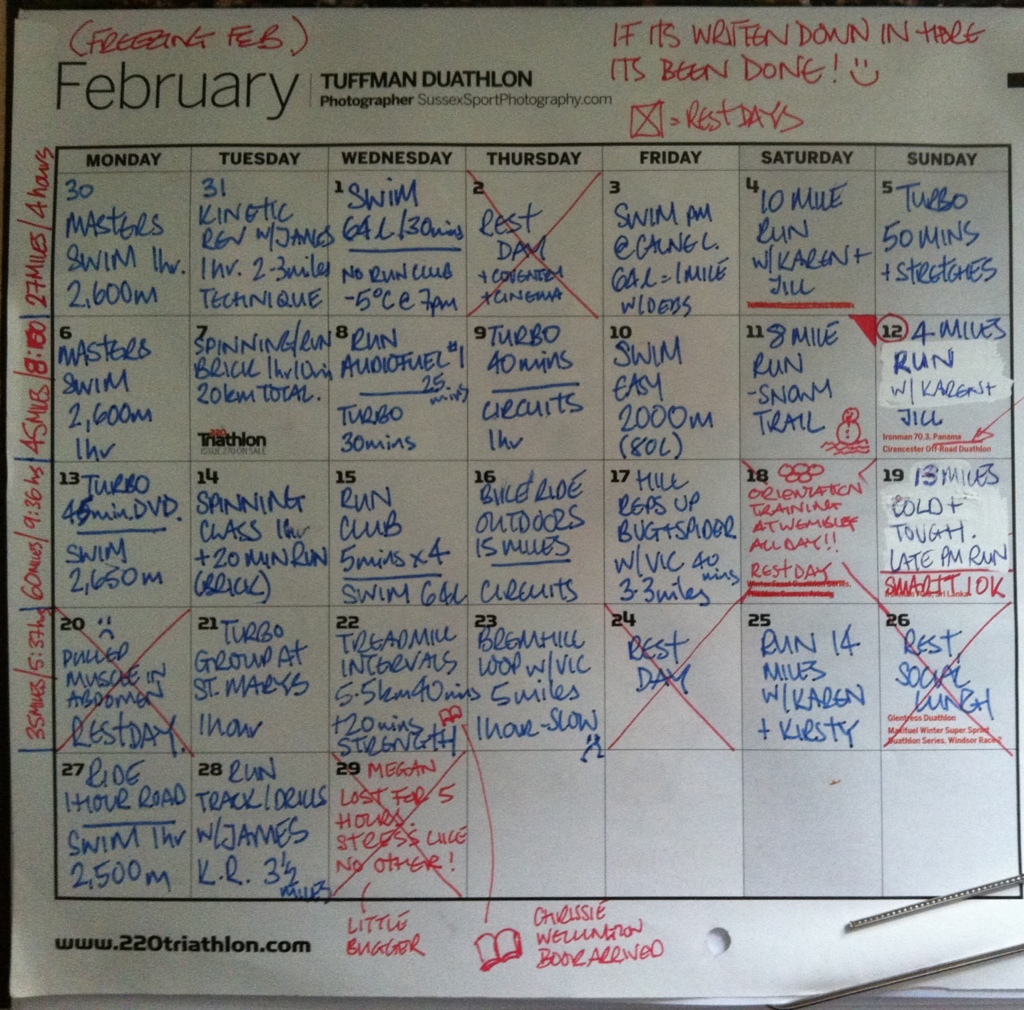 (FREEZING FEB.)
IF ITS WRITTEN DOWN IN HERE
ITS BEEN DONE!
= REST DAYS
February
TUFFMAN DUATHLON
Photographer SussexSportPhotography.com
MONDAY TUESDAY WEDNESDAY THURSDAY FRIDAY SATURDAY SUNDAY
27 MILES / 4 hours
30
MASTERS
SWIM 1hr.
2,600m
31
KINETIC
REV W/JAMES
1hr. 2-3miles
TECHNIQUE
1 SWIM
64L/30mins
NO RUN CLUB
-5°C @ 7pm
2
REST
DAY
+ COVENTRY
+ CINEMA
3
SWIM PM
@ CALNE L.
64L = 1 MILE
W/DEBS
4 10 MILE
RUN
W/KAREN +
JILL
5 TURBO
50 MINS
+ STRETCHES
45 MILES / 8:00
6
MASTERS
SWIM
2,600m
1hr
7
SPINNING/RUN
BRICK 1hr10min
20km TOTAL.
220
Triathlon
ISSUE 270 ON SALE
8 RUN
AUDIOFUEL #1
25 mins
TURBO
30mins
9 TURBO
40mins
CIRCUITS
1hr
10
SWIM
EASY
2000m
(80L)
11 8 MILE
RUN
-SNOWY
TRAIL
12 4 MILES
RUN
W/ KAREN +
JILL
Ironman 70.3. Panama
Cirencester Off-Road Duathlon
60 MILES / 9:36 hrs
13 TURBO
45min DVD.
SWIM
2,650m
14
SPINNING
CLASS 1hr
+20 MIN RUN
(BRICK)
15
RUN
CLUB
5mins x 4
SWIM 64L
16
BIKE RIDE
OUTDOORS
15 MILES
CIRCUITS
17 HILL
REPS UP
BUGT+SPIDER
W/VIC 40 mins
3.3miles
18
ORIENTATION
TRAINING
AT WEMBLEY
ALL DAY!!
REST DAY
19 13 MILES
COLD +
TOUGH.
LATE PM RUN
SMART 10K
35 MILES / 5:37 hrs
20
PULLED
MUSCLE IN
ABDOMEN
REST DAY.
21 TURBO
GROUP AT
ST. MARYS
1 hour
22
TREADMILL
INTERVALS
5.5km 40mins
+20mins
STRENGTH
23
BREMHILL
LOOP W/VIC
5 miles
1 HOUR - SLOW
24
REST
DAY
25
RUN 14
MILES
W/KAREN
+ KIRSTY
26
REST,
SOCIAL
LUNCH
Glentress Duathlon
Maxifuel Winter Super Sprint
Duathlon Series, Windsor Race 2
27 RIDE
1 HOUR ROAD
SWIM 1hr
2,500m
28 RUN
TRACK/DRILLS
W/JAMES
K.R. 3½
miles
29 MEGAN
LOST FOR 5
HOURS.
STRESS LIKE
NO OTHER!
LITTLE
BUGGER
CHRISSIE
WELLINGTON
BOOK ARRIVED
www.220triathlon.com